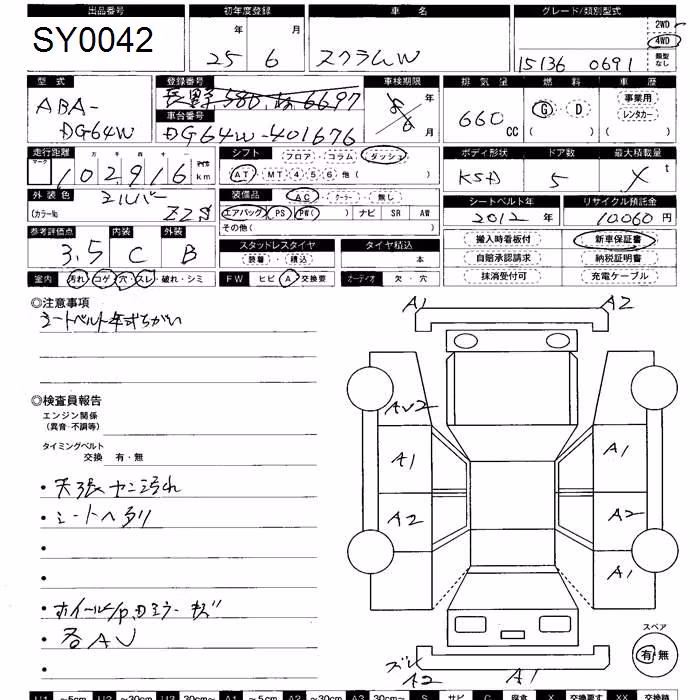 出品番号 初年度登録 車名 グレード/類別型式
SY0042 年 月 2WD
25 6 スクラムW 4WD
15136 0691 類型なし
型式 登録番号 車検期限 排気量 燃料 車歴
ABA- 長野 580 6697 年 事業用
車台番号 660 CC G D レンタカー
DG64W DG64W-401676 8/6 月 ( ) ( )
走行距離 シフト フロア・コラム ダッシュ ボディ形状 ドア数 最大積載量
マーク 十 万 千 百 十 一 マイル
102,916 km AT MT 4 5 6 他( ) KSD 5 X t
外装色 シルバー 装備品 AC クーラー 無し シートベルト年 リサイクル預託金
(カラー№) Z2S エアバッグ PS PW( ) ナビ SR AW 2012年 10,060円
参考評価点 内装 外装 その他( ) 搬入時看板付 新車保証書
3.5 C B スタッドレスタイヤ タイヤ積込 自賠承認請求 納税証明書
装着・積込 本 抹消受付可 充電ケーブル
室内 汚れ コゲ 穴・スレ 破れ・シミ FW ヒビ A 交換要 オーディオ 欠・穴
◎注意事項 A1 A2
シートベルト年式ちがい
◎検査員報告
エンジン関係
(異音・不調等) AV2
タイミングベルト
交換 有・無 A1 A1
・天張ヤニ汚れ
・シートヘタリ A2 A2
・
・ A1
・ホイール/P,Dミラーキズ
・各AU スペア
・ 有・無
ズレ
A2 A1
U1 ～5cm U2 ～20cm U3 30cm～ A1 ～5cm A2 ～30cm A3 30cm～ S サビ C 腐食 X 交換要す XX 交換跡